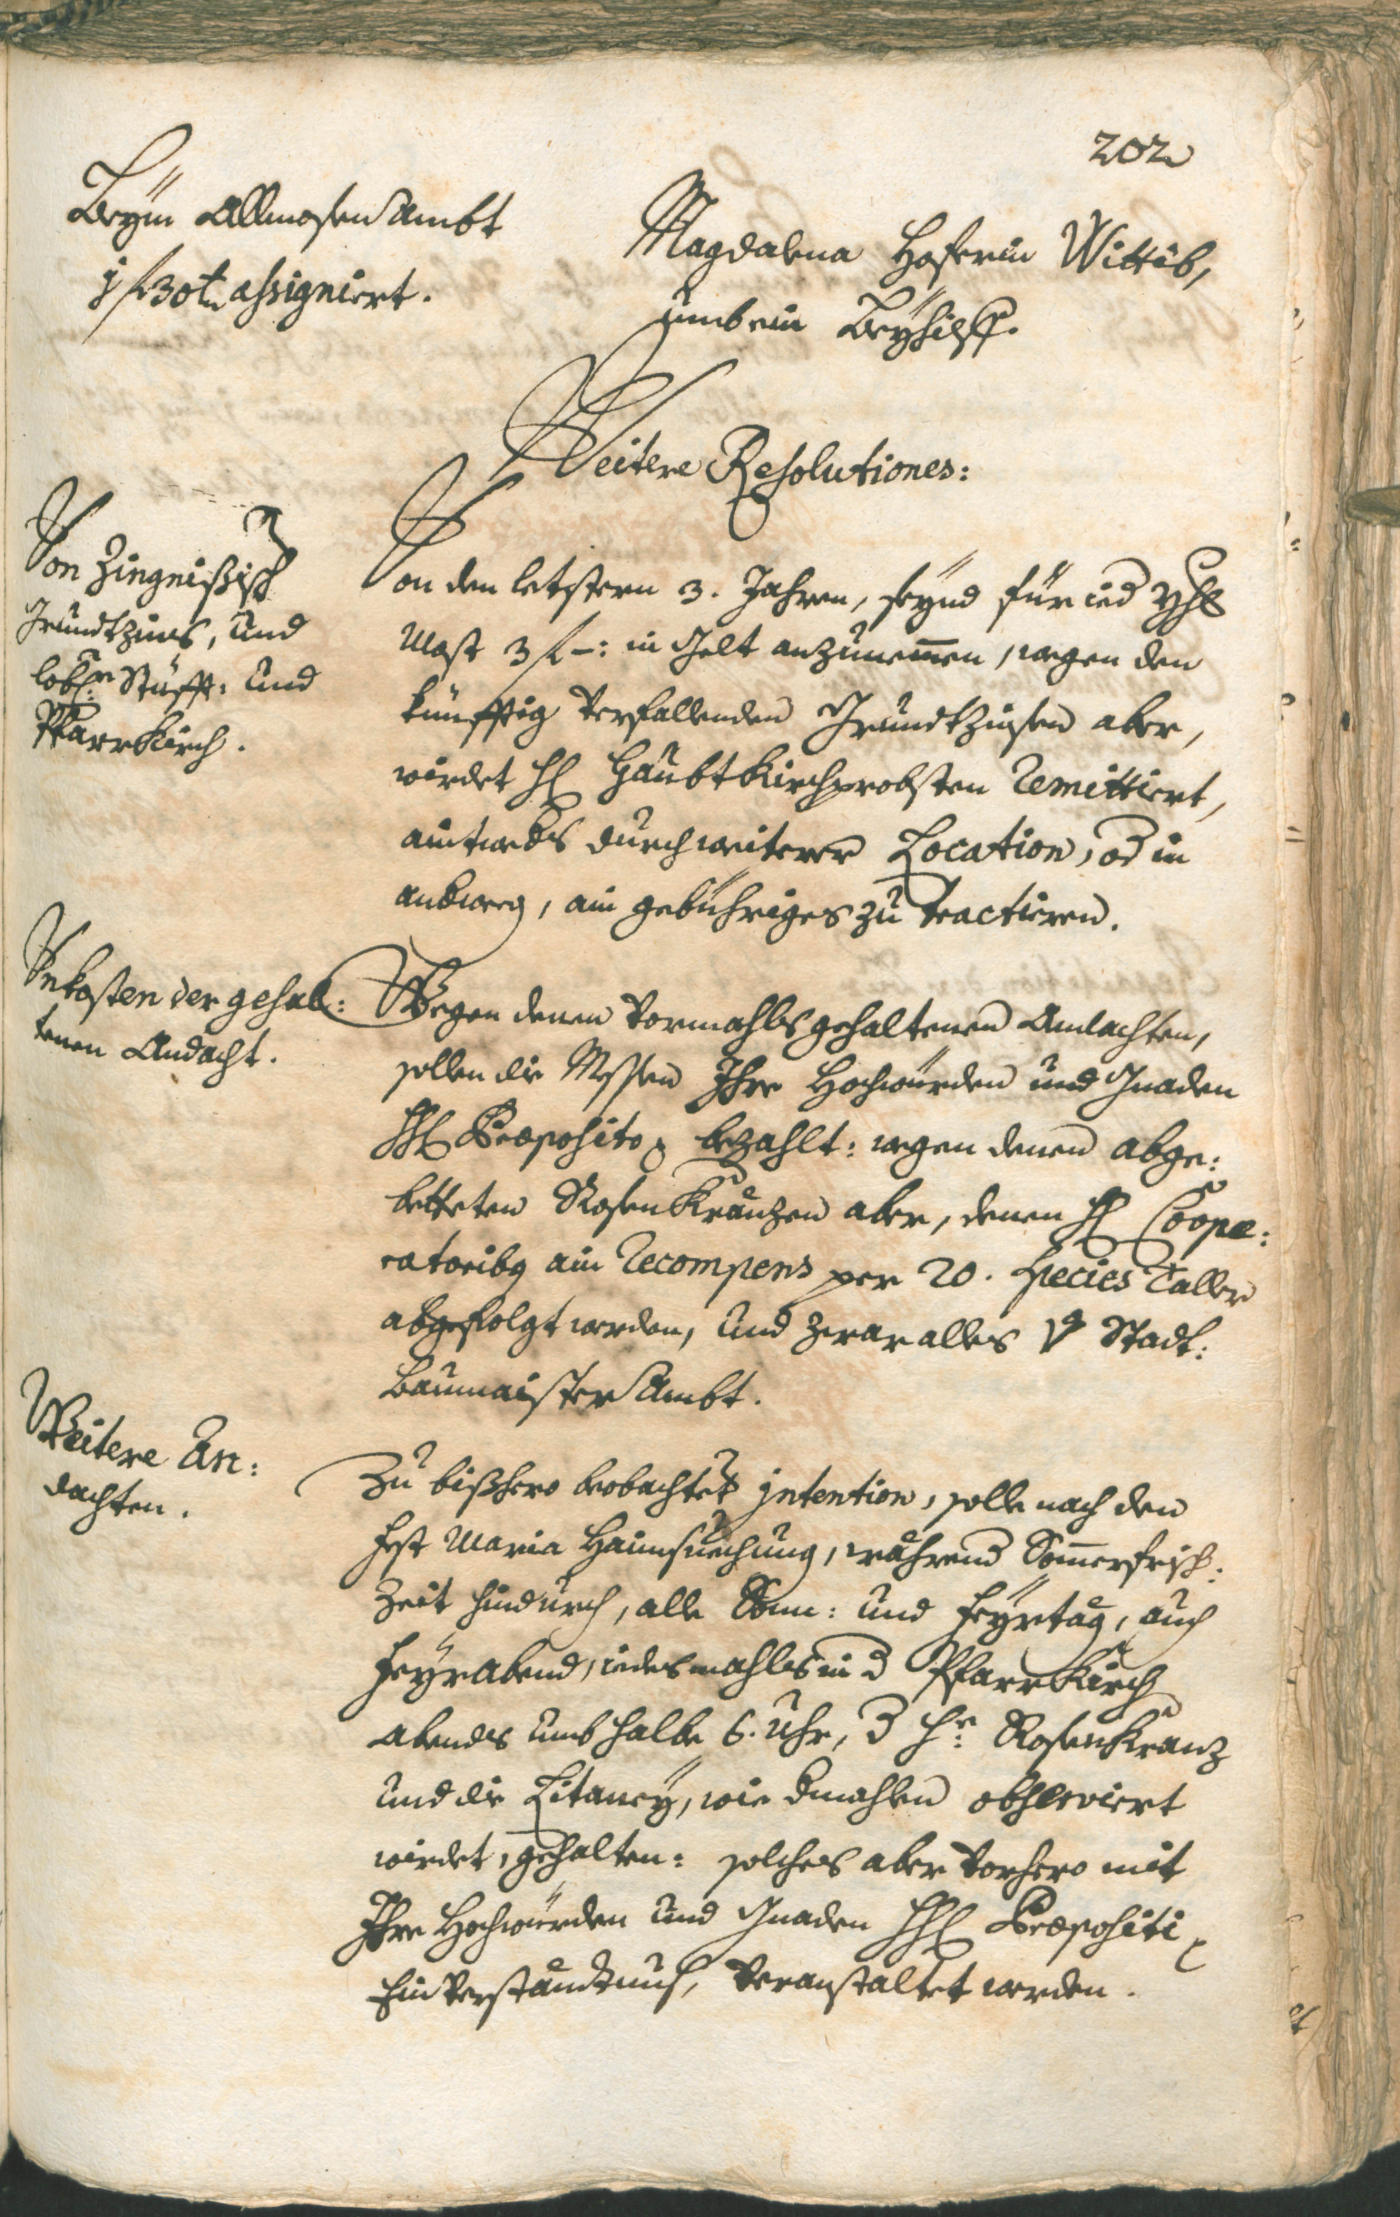 202
Beym Allmosen Ambt
1 f 30 kr assigniert.
Magdalena Hoferin Wittib,
umb ein Beyhilff.
Weitere Resolutiones:
Von
Grundtzins, und
lobl: Stüfft: und
Pfarrkirch.
Von den letstern 3. Jahren, seynd für ied Yhl
Most 3 f –: in Gelt anzunemmen, wegen den
künfftig verfallenden Grundtzinsen aber,
wirdet H Haubtkirchprobsten remittiert,
aintweders durch weitere Location, od in
andweeg, ain gebühriges zu tractieren.
Unkosten der gehal:
tenen Andacht.
Wegen denen vormahls gehaltenen Andachten,
sollen die Messen Ihre Hochwürden und Gnaden
HH Præposito bezahlt: wegen denen abge:
betteten Rosenkränzen aber, denen HH Coope:
ratoribus ain Recompens per 20. Species Taller
abgefolgt werden, und zwar alles Stadt:
Baumaister Ambt.
Weitere An:
dachten.
Zu bißhero beobachter Intention, solle nach den
Fest Maria Haimsuechung, während Sommerfrisch:
Zeit hindurch, alle Sonn: und Feyrtäg, auch
Feyrabend, iedesmahls in d Pfarrkirch
abends umb halbe 6. Uhr, d H: Rosenkranz
und die Litaney, wie dmahlen observiert
wirdet, gehalten: solches aber vorhero mit
Ihre Hochwürden und Gnaden HH Præpositi
Einverständtnus, veranstaltet werden.